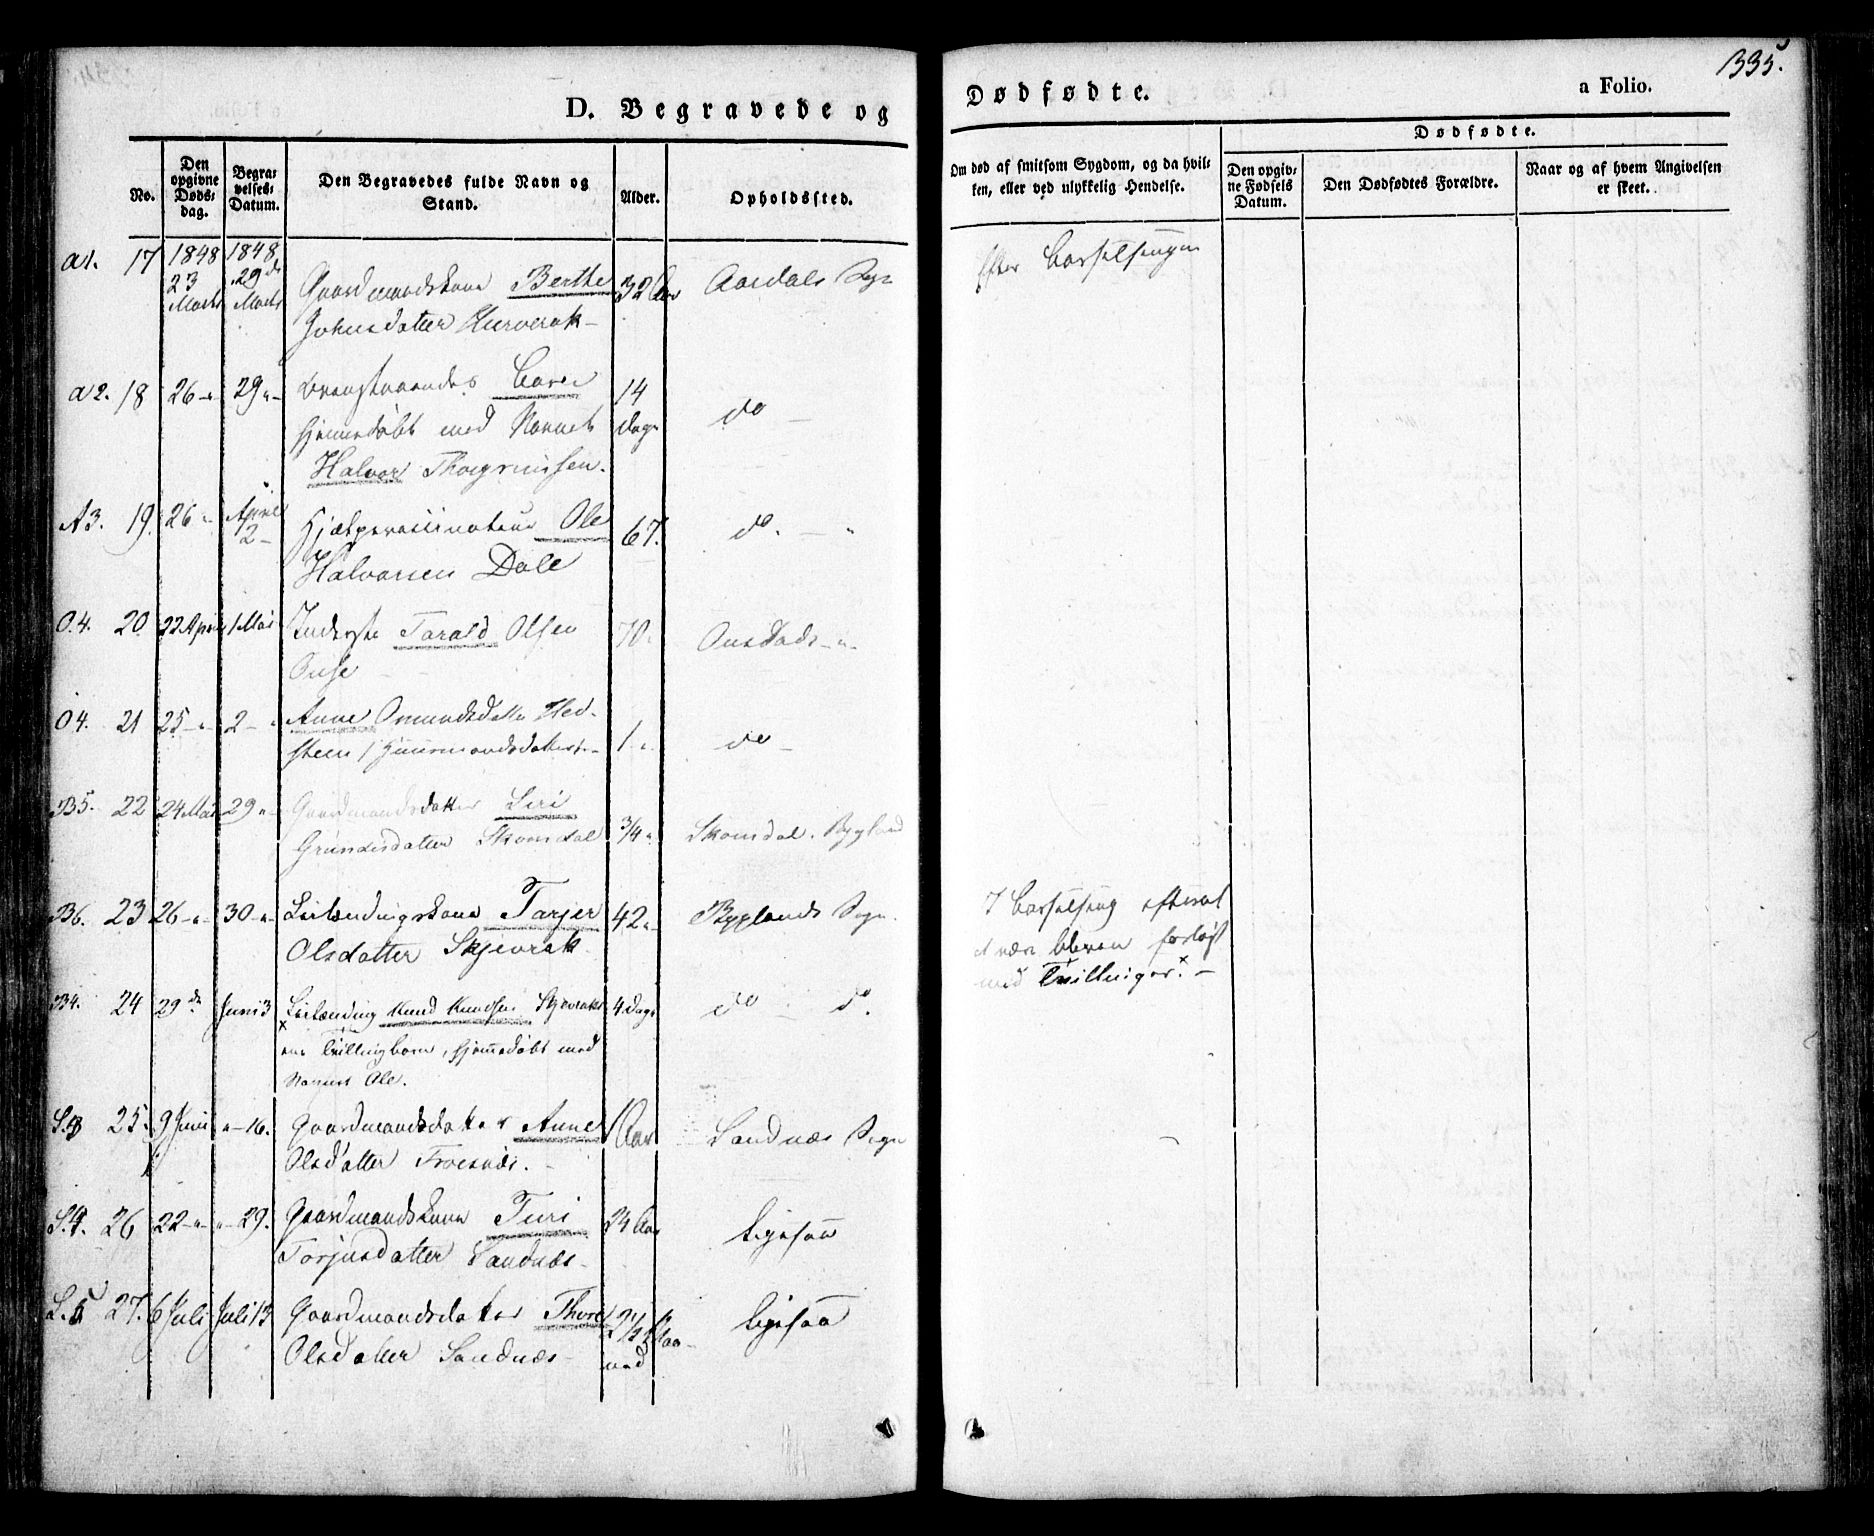 335.
D. Begravede og
Dødfødte.
a Folio.
No.
Den opgivne Døds-dag.
Begra-velses-Datum.
Den Begravedes fulde Navn og Stand.
Alder.
Opholdssted.
Om død af smitsom Sygdom, og da hvil-
ken, eller ved ulykkelig Hendelse.
Dødfødte.
Den opgiv-
ne Fødsels
Datum.
Den Dødfødtes Forældre.
Naar og af hvem Angivelsen
er skeet.
a1. 17 1848 23 Marts 1848 29de Marts Gaardmandskone Berthe 32 Aar Aardals Sogn
Johnsdatter
Efter Barselsengen
a2. 18 26 29
14 dage do
hjemmedøbt med Navnet
Halvor
A3. 19. 26 April 2 Ole 67. do.
Halvorsen Dale
O.4. 20 22 April 1 Mai Inderste Tarald Olsen 70
Ouse
O4. 21 25 2 Anne Omundsdatter Hed-
steen 1 do
B5. 22 24 Mai 29 Gaardmandsdatter Siri
Skomdal 3/4 Skomdal. Bygland
B6. 23 26 30 Leilendingskone Tarjer 42 Byglands Sogn.
Olsdatter Skjevrak
I Barselseng efterat
være bleven forløst
med Tvillinger.
B4. 24 29de Juni 3 Leilænding Knud Knudsens 4 Dage do do.
Tvillingbarn, hjemmedøbt med
Navnet Ole.
S.3 25. 9 Juni 16. Gaardmandsdatter Anne Aar Sandnæs Sogn
Olsdatter
S.4. 26 22 29. Gaardmandskone Turi 24 Aar Ligesaa
Torjusdatter Sandnæs
S.5 27. 6 Juli Juli 13 Gaardmandsdatter 2 1/2 Ligesaa
Olsdatter Sandnæs